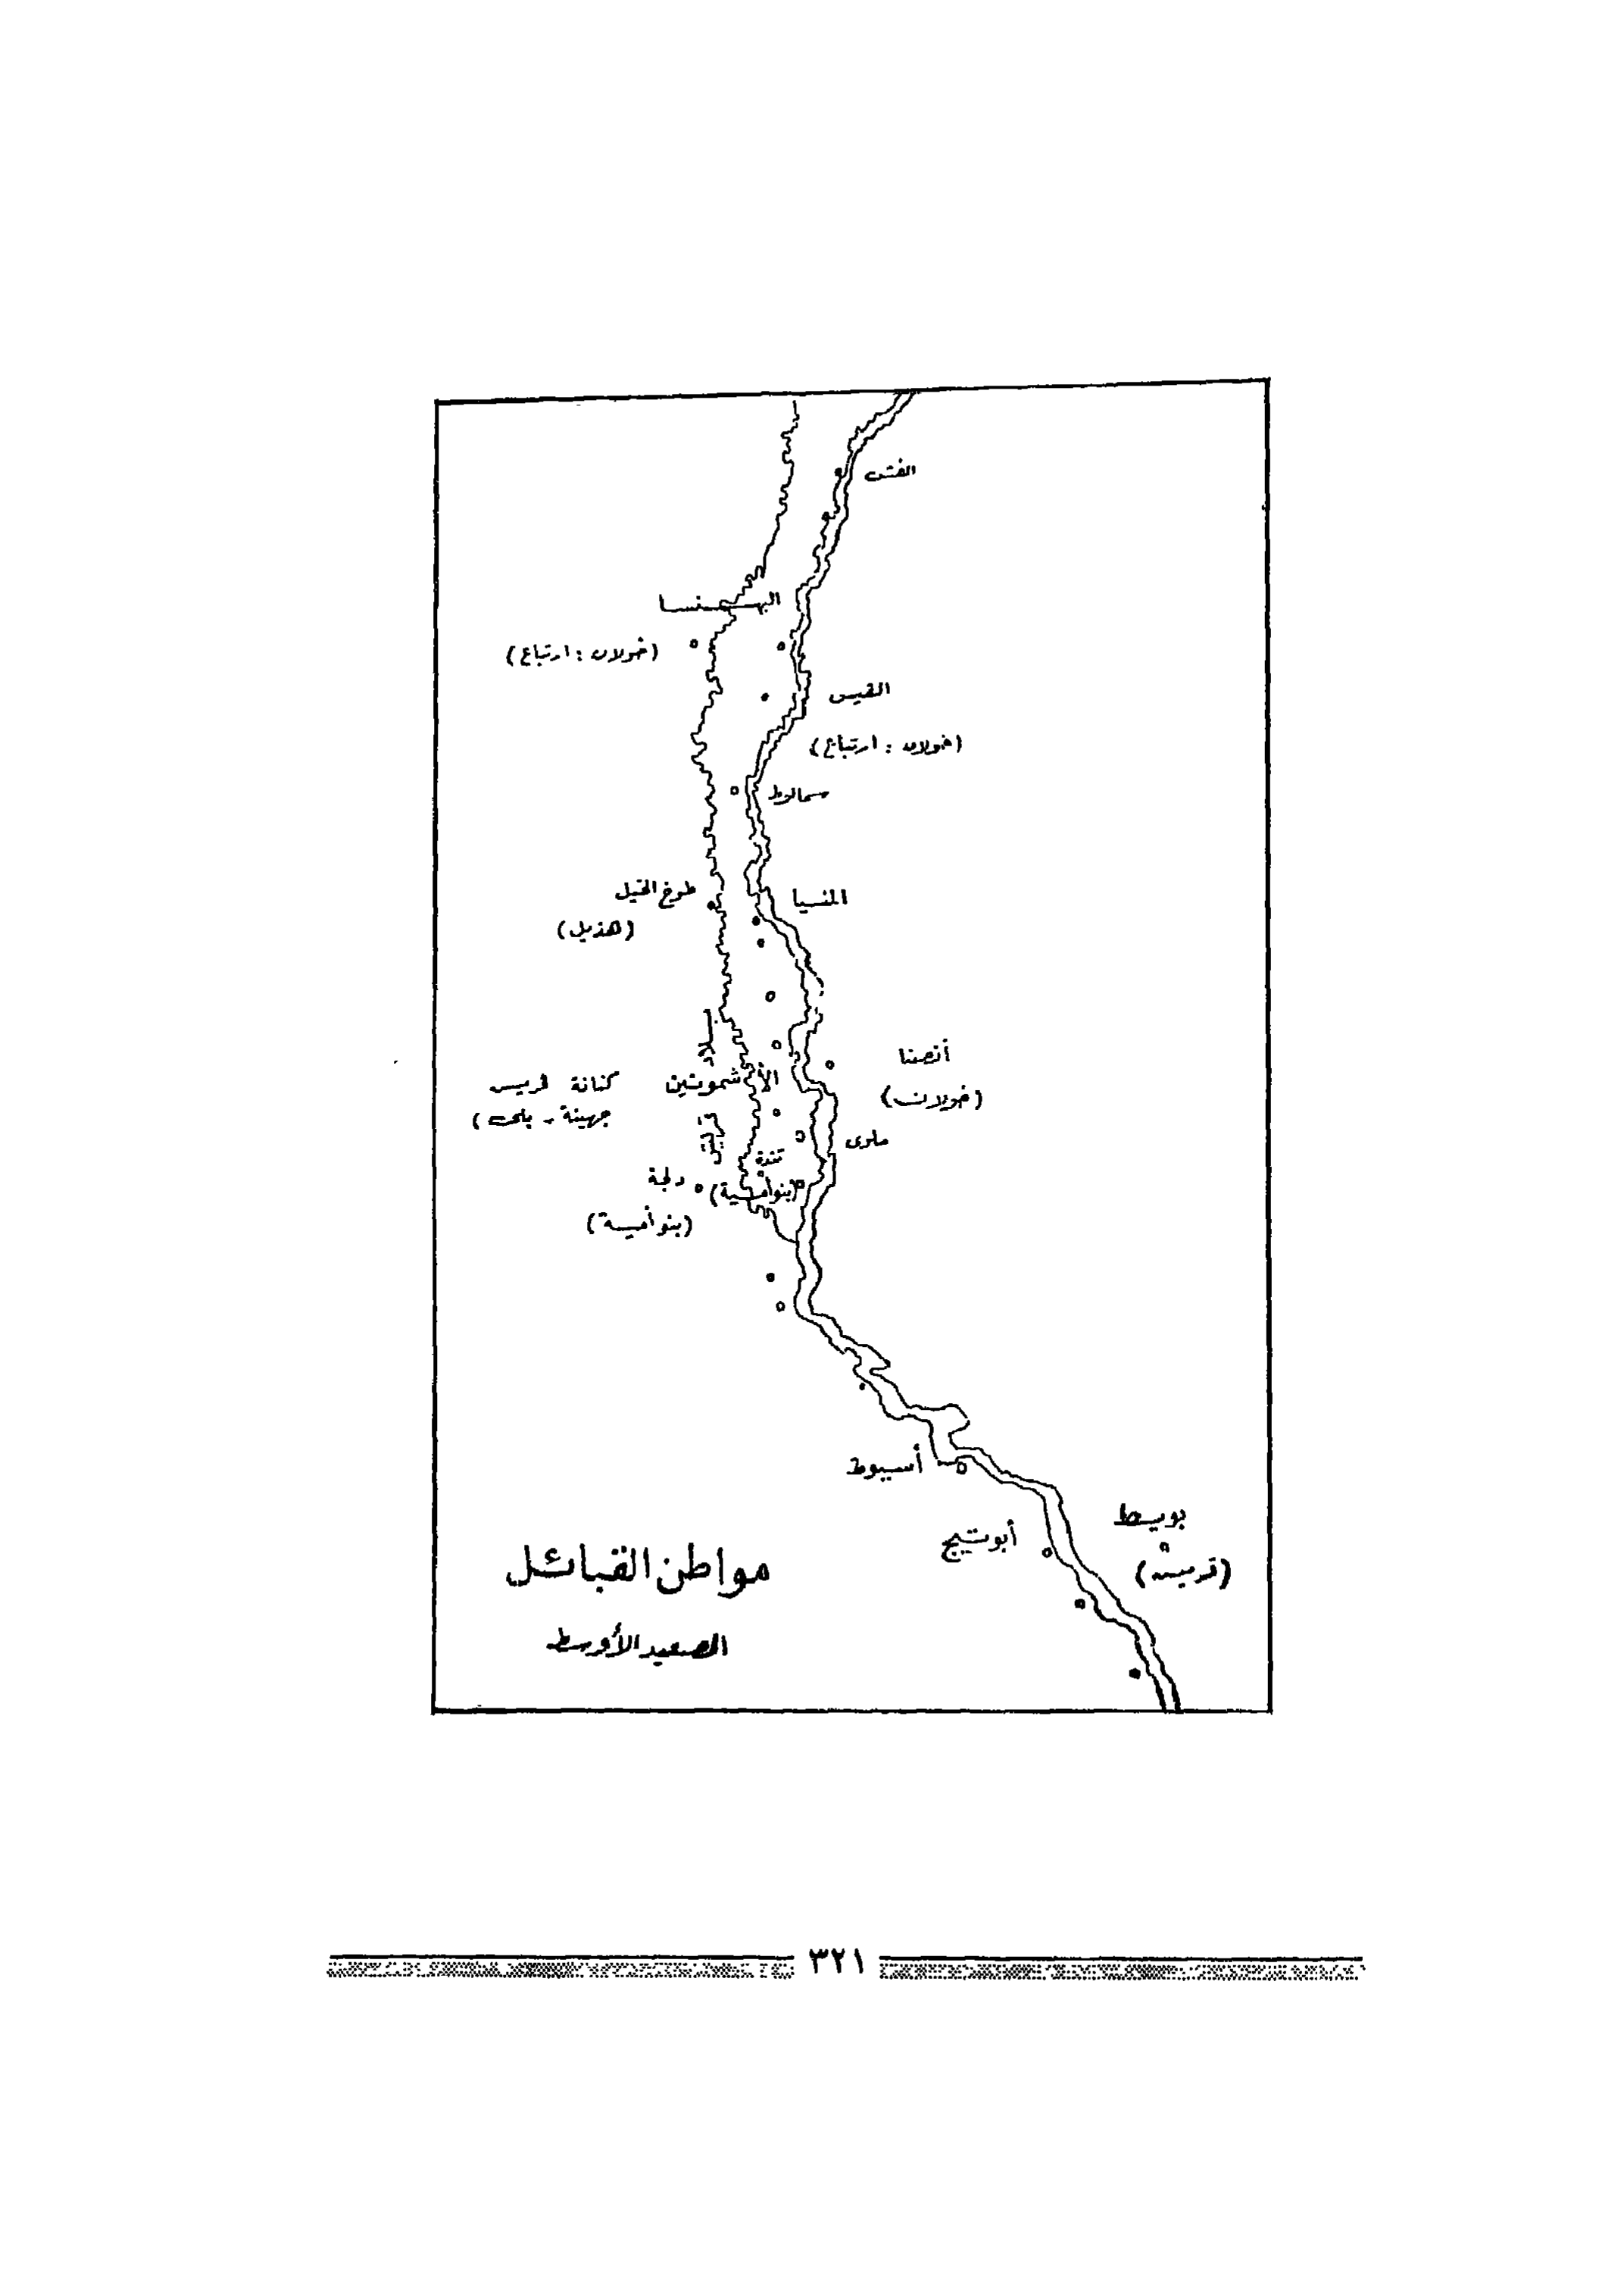 الفشن
البهنسا
(خولان : ارتباع)
القيس
(خولان : ارتباع)
سمالوط
طوخ الخيل
(هذيل)
المنيا
بلاد
قريش
أنصنا
(خولان)
الأشمونين
كنانة قريس
جهينة - بلى)
ملوى
تندة
(بنو أمية)
دلجة
(بنو أمية)
أسيوط
أبوتيج
بويط
(قريس)
مواطن القبائل
الصعيد الأوسط
٣٢١